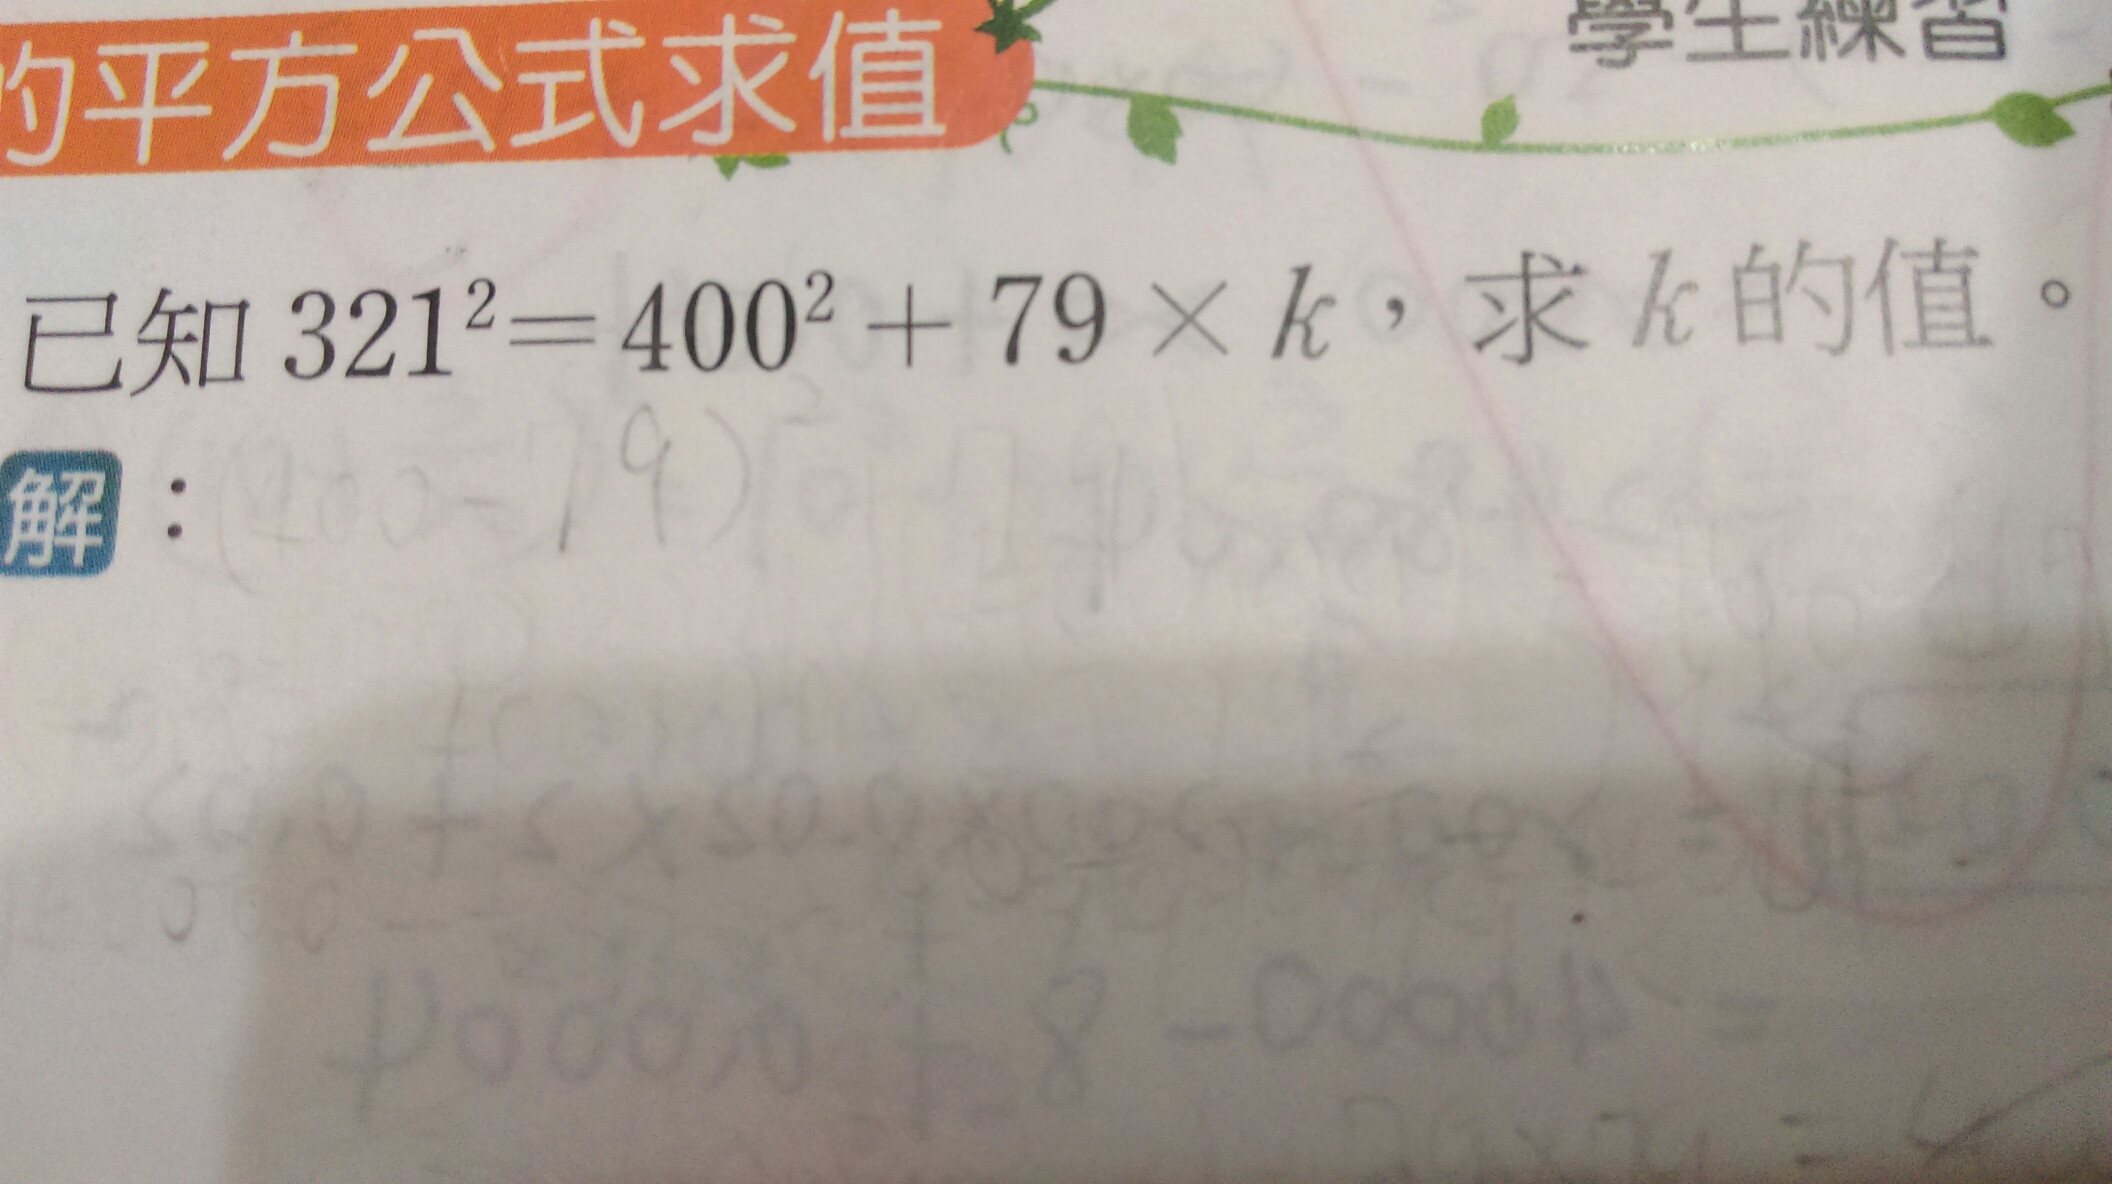 的平方公式求值
學生練習
已知 321²=400²+79×k，求 k 的值。
解：(400-79)²